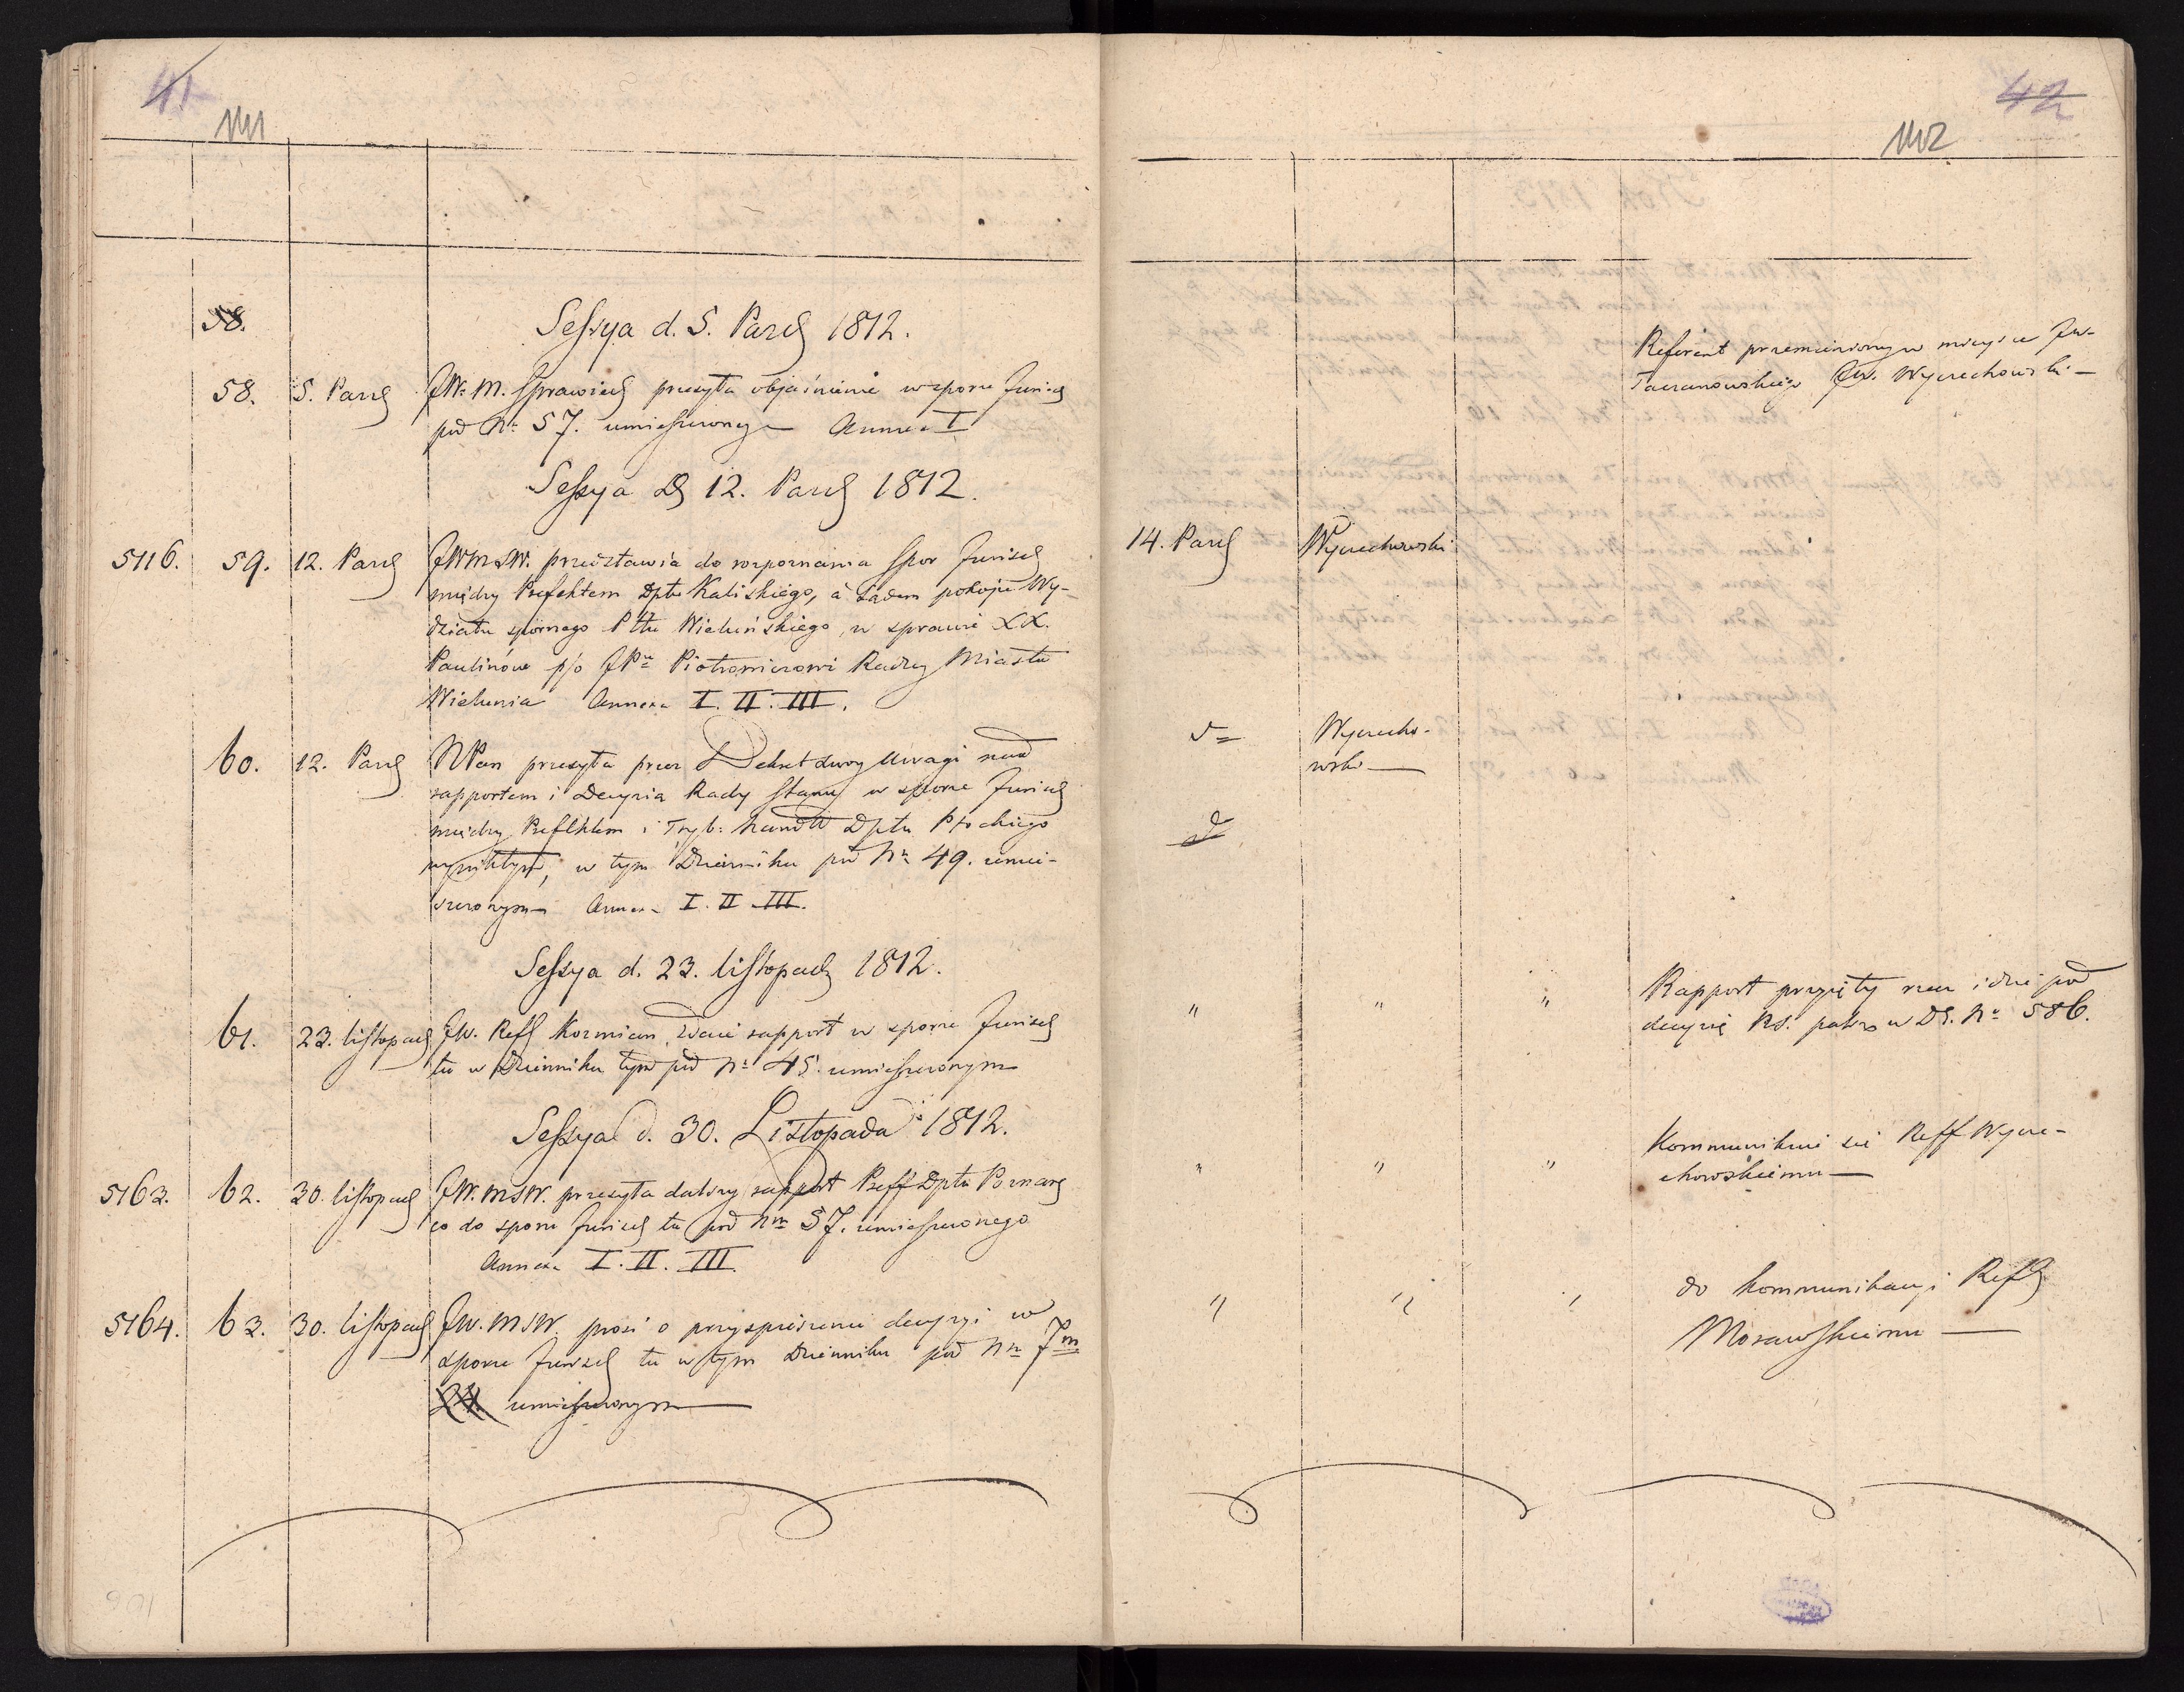 41
1111
58.
Sessya d. 5. Pazd 1812.
58. 5. Pazd JW. M. Sprawied przesyła objaśnienie w sporze Jurisd
pod Nr 57. umieszczonego Annexa I
Sessya D 12. Pazd 1812.
5116. 59. 12. Pazd JWMSW. przedstawia do rozpoznania Spor Jurisd
między Prefektem Dptu Kaliskiego, a Sądem pokoju Wy-
działu spornego Pttu Wieluńskiego, w sprawie XX.
Paulinów p/o JPu Piotrowiczowi Radzcy Miasta
Wielunia Annexa I. II. III.
60. 12. Pazd NPan przesyła przez Dekret swoy Uwagi nad
rapportem i Decyzia Rady Stanu w sporze Jurisd
między Prefektem i Tryb: handl Dptu Płockiego
wynikłym, w tym Dzienniku pod Nr 49. umie-
szczonym Annexa I. II. III.
Sessya d. 23. listopada 1812.
61. 23. listopad JW. Reff Kozmian, zdaie rapport w sporze Jurisd
tu w Dzienniku tym pod Nr 45. umieszczonym
Sessya d. 30. Listopada 1812.
5163. 62. 30. listopad JW. MSW. przesyła dalszy rapport Preff Dptu Poznans
co do sporu Jurisd tu pod Nm 57. umieszczonego
Annexa I. II. III.
5164. 63. 30. listopad JW. MSW. prosi o przyspieszenie decyzyi w
sporze Jurisd tu w tym Dzienniku pod Nm 7m
umieszczonym
42
1112
Referent przemieniony w mieysce JW-
Taczanowskiego JW. Wyczechowski
14. Pazd Wyczechowski
d= Wyczecho-
wski
d
" " " Rapport przyięty rzecz idzie pod
decyzię RS. patrz w Dz. Nr 586.
" " " Kommunikuie się Reff Wycze-
chowskiemu
" " " do kommunikacyi Reff
Morawskiemu